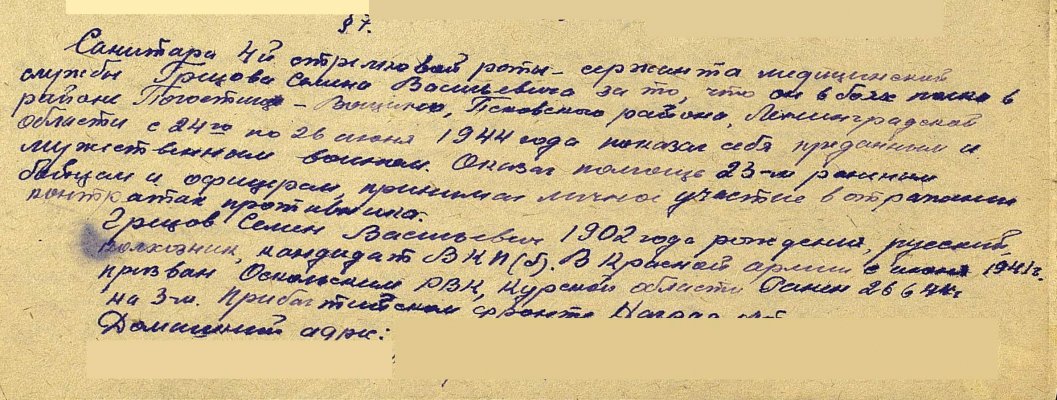 § 7.
Санитара 4й стрелковой роты - сержанта медицинской
службы Грецова Семена Васильевича за то, что он в боях полка в
районе - Вощинино, Псковского района, Ленинградской
области с 24го по 26 июня 1944 года показал себя преданным и
мужественным воином. Оказал помощь 23-м раненым
бойцам и офицерам, принимал личное участие в отражении
контратак противника.
Грецов Семен Васильевич 1902 года рождения, русский,
колхозник, кандидат ВКП(б). В Красной армии с июня 1941г.
призван Оскольским РВК, Курской области Ранен 26 6 44г
на 3-м. Прибалтийском фронте Наград
Домашний адрес: